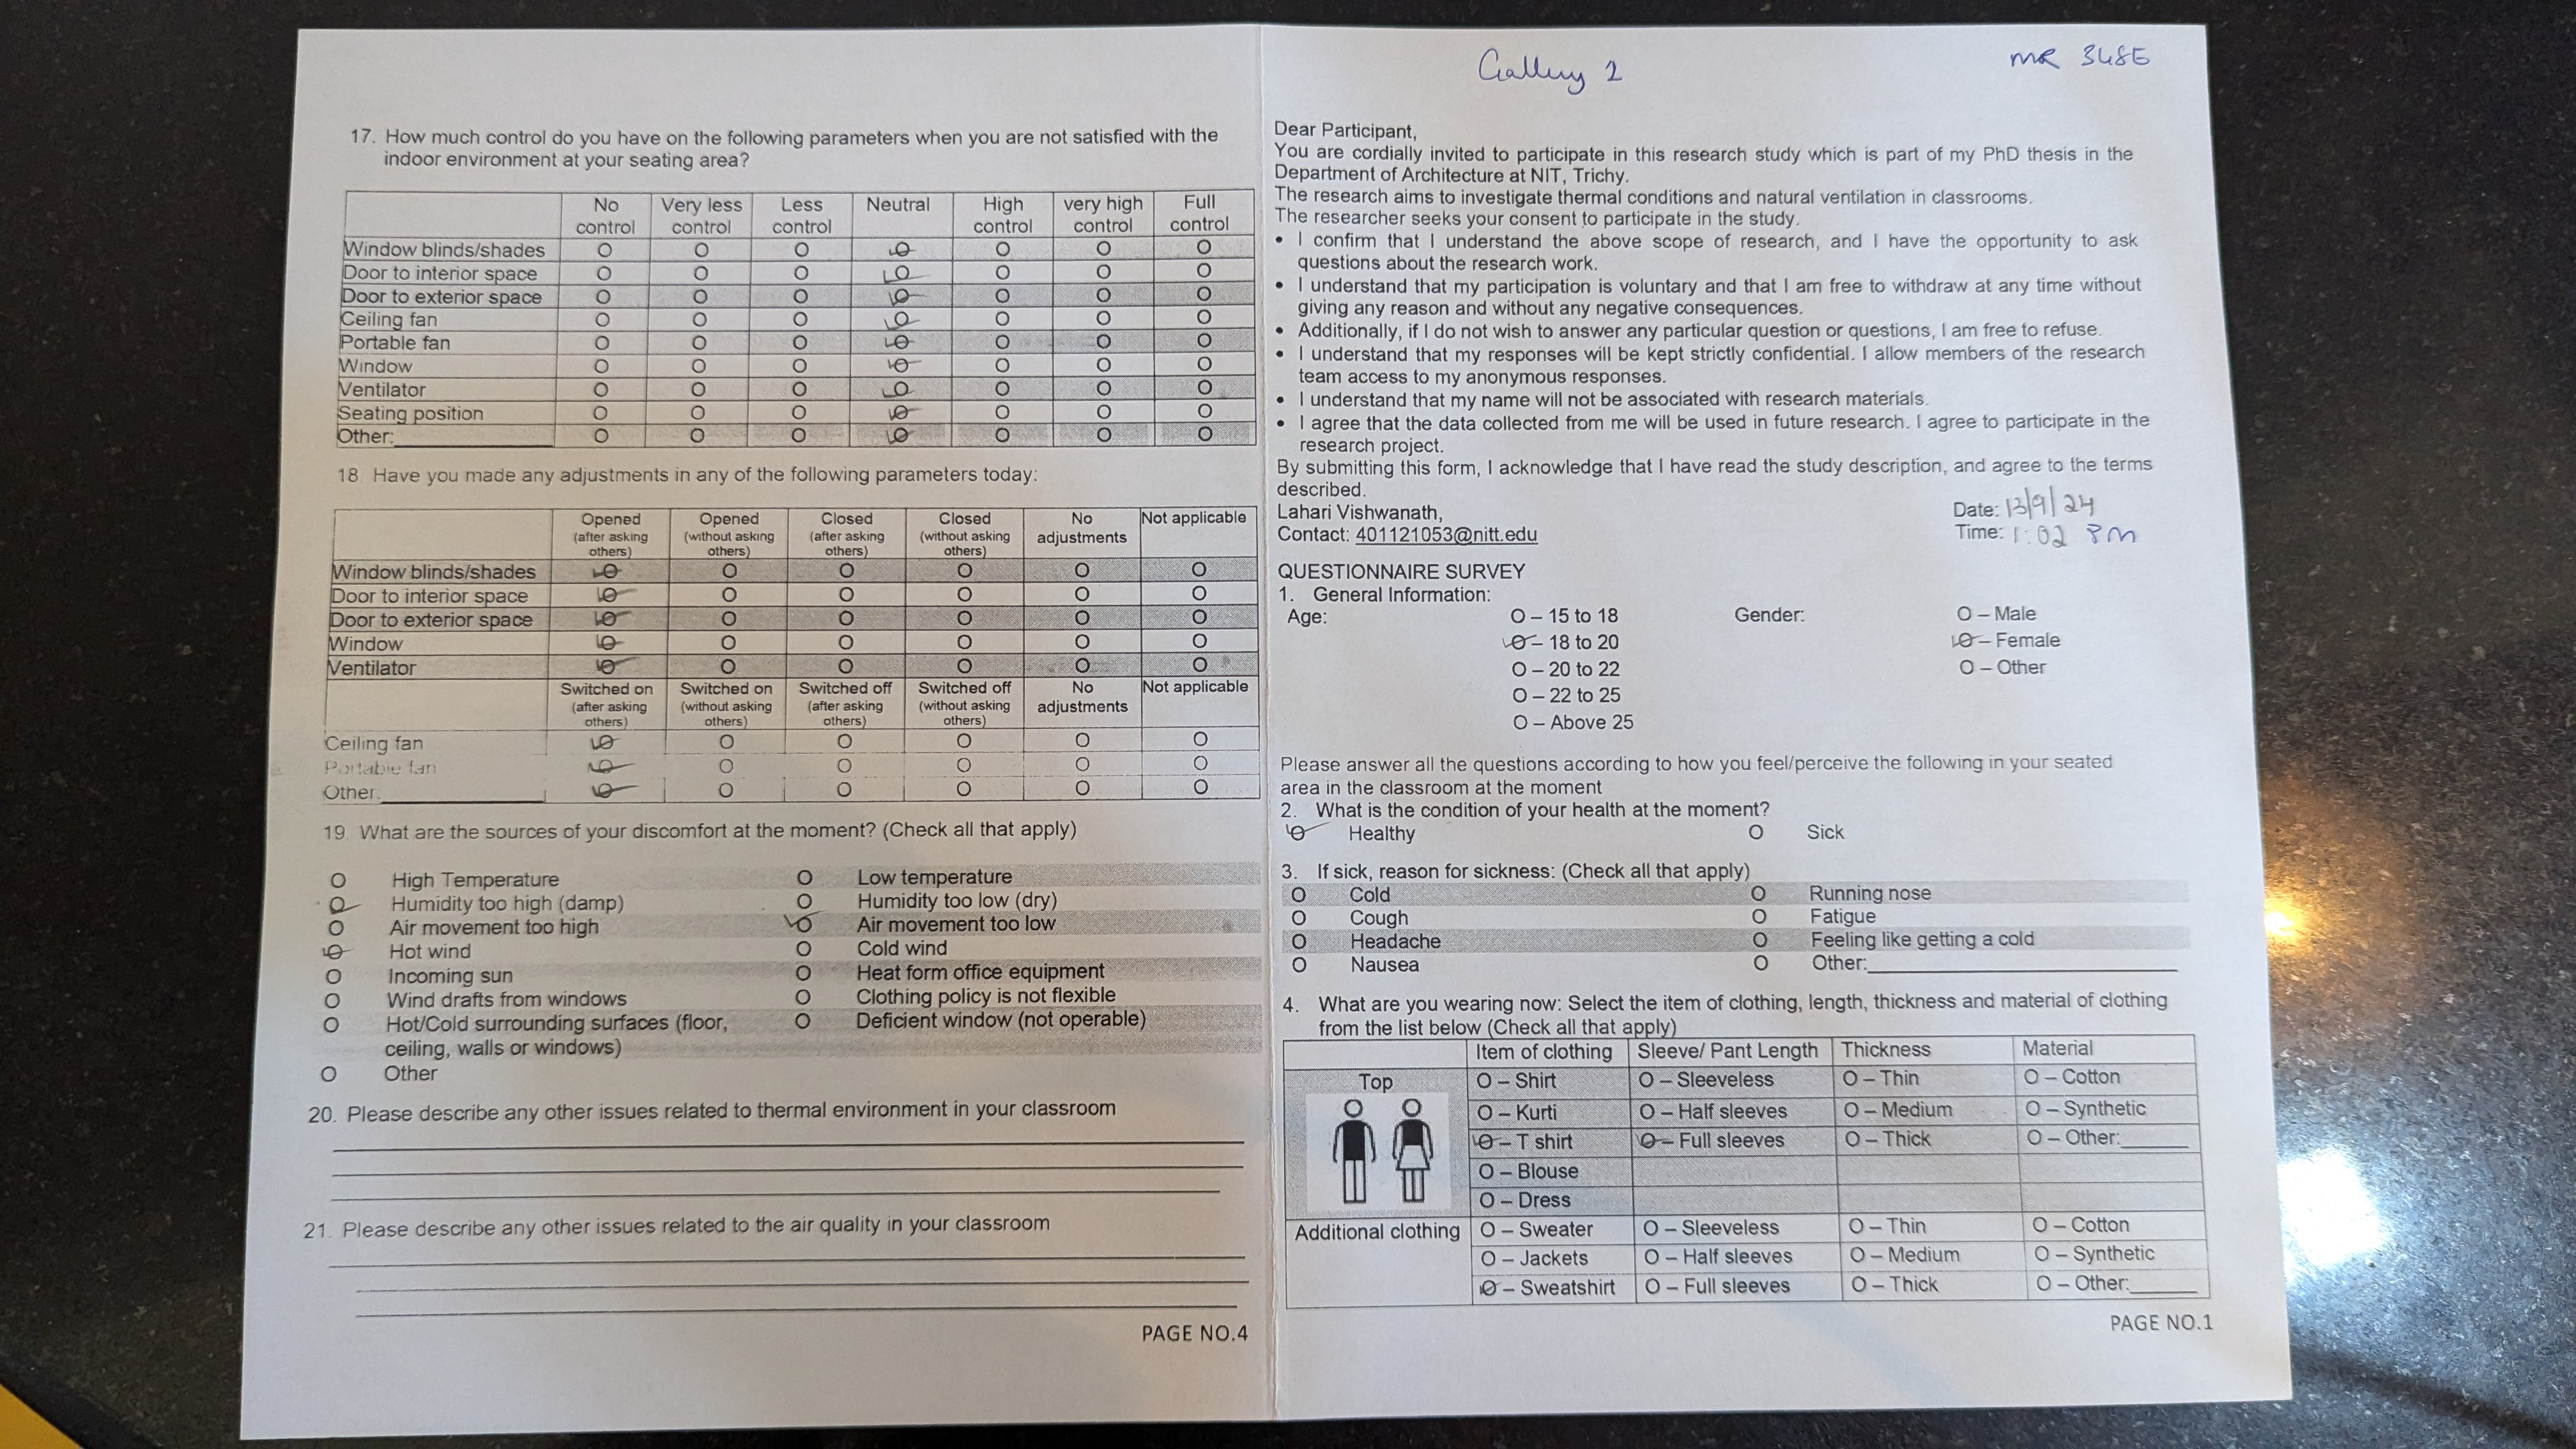 17. How much control do you have on the following parameters when you are not satisfied with the
indoor environment at your seating area?
No control Very less control Less control Neutral High control very high control Full control
Window blinds/shades O O O O O O O
Door to interior space O O O O O O O
Door to exterior space O O O O O O O
Ceiling fan O O O O O O O
Portable fan O O O O O O O
Window O O O O O O O
Ventilator O O O O O O O
Seating position O O O O O O O
Other: O O O O O O O
18. Have you made any adjustments in any of the following parameters today:
Opened (after asking others) Opened (without asking others) Closed (after asking others) Closed (without asking others) No adjustments Not applicable
Window blinds/shades O O O O O O
Door to interior space O O O O O O
Door to exterior space O O O O O O
Window O O O O O O
Ventilator O O O O O O
Switched on (after asking others) Switched on (without asking others) Switched off (after asking others) Switched off (without asking others) No adjustments Not applicable
Ceiling fan O O O O O O
Portable fan O O O O O O
Other: O O O O O O
19. What are the sources of your discomfort at the moment? (Check all that apply)
O High Temperature O Low temperature
O Humidity too high (damp) O Humidity too low (dry)
O Air movement too high O Air movement too low
O Hot wind O Cold wind
O Incoming sun O Heat form office equipment
O Wind drafts from windows O Clothing policy is not flexible
O Hot/Cold surrounding surfaces (floor, O Deficient window (not operable)
ceiling, walls or windows)
O Other
20. Please describe any other issues related to thermal environment in your classroom
21. Please describe any other issues related to the air quality in your classroom
PAGE NO.4
Gallery 2 MR 348E
Dear Participant,
You are cordially invited to participate in this research study which is part of my PhD thesis in the
Department of Architecture at NIT, Trichy.
The research aims to investigate thermal conditions and natural ventilation in classrooms.
The researcher seeks your consent to participate in the study.
• I confirm that I understand the above scope of research, and I have the opportunity to ask
questions about the research work.
• I understand that my participation is voluntary and that I am free to withdraw at any time without
giving any reason and without any negative consequences.
• Additionally, if I do not wish to answer any particular question or questions, I am free to refuse.
• I understand that my responses will be kept strictly confidential. I allow members of the research
team access to my anonymous responses.
• I understand that my name will not be associated with research materials.
• I agree that the data collected from me will be used in future research. I agree to participate in the
research project.
By submitting this form, I acknowledge that I have read the study description, and agree to the terms
described.
Lahari Vishwanath, Date: 13/9/24
Contact: 401121053@nitt.edu Time: 1:02 PM
QUESTIONNAIRE SURVEY
1. General Information:
Age: O – 15 to 18 Gender: O – Male
O – 18 to 20 O – Female
O – 20 to 22 O – Other
O – 22 to 25
O – Above 25
Please answer all the questions according to how you feel/perceive the following in your seated
area in the classroom at the moment
2. What is the condition of your health at the moment?
O Healthy O Sick
3. If sick, reason for sickness: (Check all that apply)
O Cold O Running nose
O Cough O Fatigue
O Headache O Feeling like getting a cold
O Nausea O Other:
4. What are you wearing now: Select the item of clothing, length, thickness and material of clothing
from the list below (Check all that apply)
Item of clothing Sleeve/ Pant Length Thickness Material
Top O – Shirt O – Sleeveless O – Thin O – Cotton
O – Kurti O – Half sleeves O – Medium O – Synthetic
O – T shirt O – Full sleeves O – Thick O – Other:
O – Blouse
O – Dress
Additional clothing O – Sweater O – Sleeveless O – Thin O – Cotton
O – Jackets O – Half sleeves O – Medium O – Synthetic
O – Sweatshirt O – Full sleeves O – Thick O – Other:
PAGE NO.1